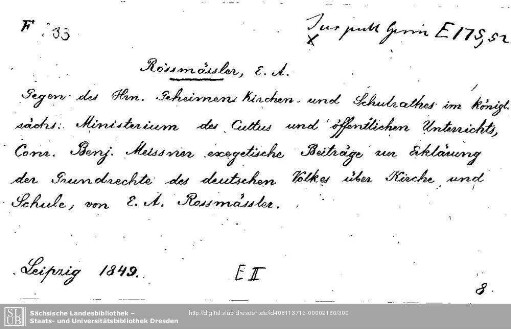 F 33
Jus publ Germ E 175, 52
x
Rossmässler, E. A.
Gegen des Hrn. Geheimens Kirchen- und Schulrathes im königl.
sächs. Ministerium des Cultus und öffentlichen Unterrichts,
Conr. Benj. Meissner exegetische Beiträge zur Erklärung
der Grundrechte des deutschen Volkes über Kirche und
Schule, von E. A. Rossmässler.
Leipzig 1849.
E II
8.
SLUB
Sächsische Landesbibliothek –
Staats- und Universitätsbibliothek Dresden